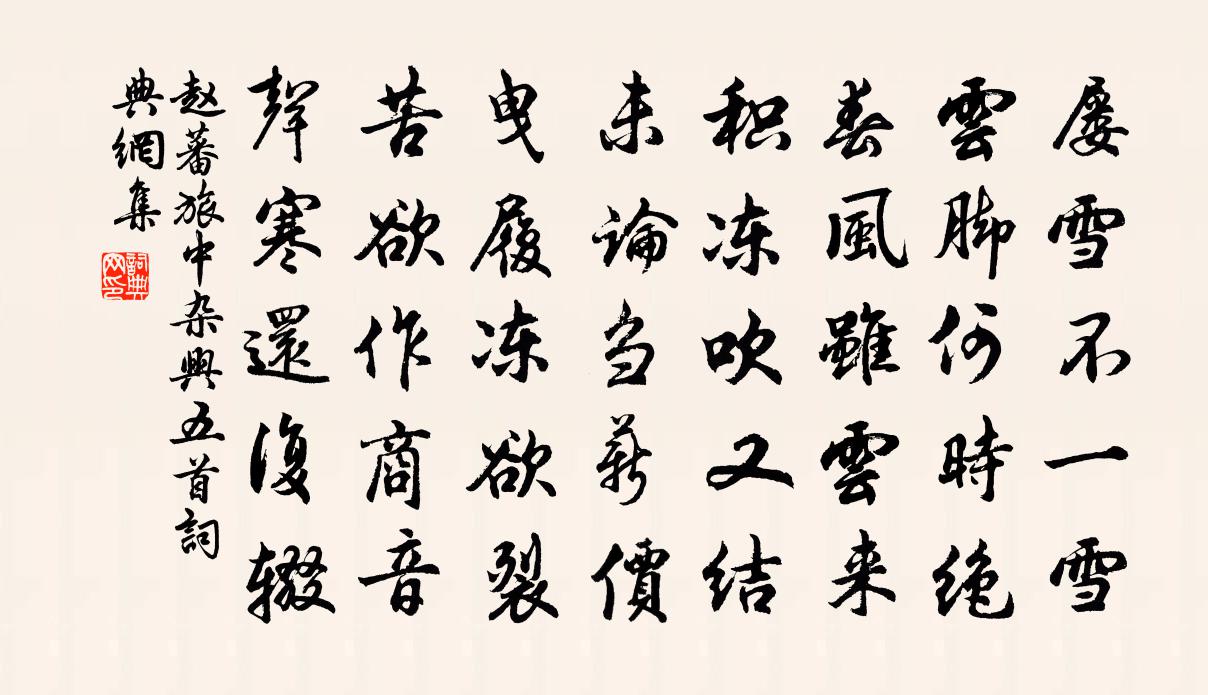 屡雪不一雪
雲脚何時绝
春風雖雲来
积冻吹又结
未論刍薪價
曳履冻欲裂
苦欲作商音
聲寒還復辍
赵蕃旅中杂興五首詞
典網集
詞典
网印